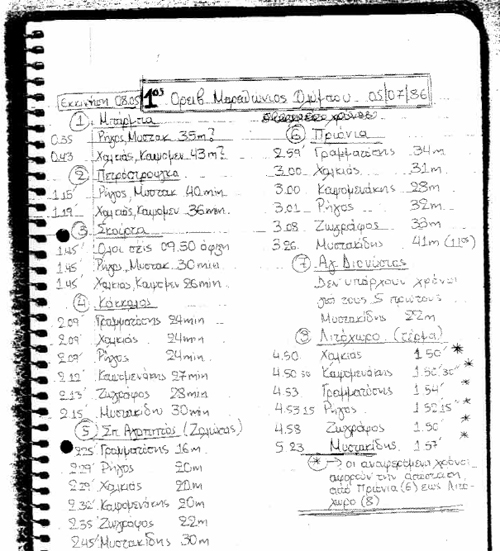 Εκκίνηση 08.05
1ος Ορειβ. Μαραθώνιος Ολύμπου 05/07/86
① Μπάρμπα
0.35 Ρήγος, Μυστακ 35m?
0.43 Χαλκιάς, Καψομεν 43m?
② Πετρόστρουγκα
1.15' Ρήγος, Μυστακ 40min
1.19' Χαλκιάς, Καψομεν 36min
③ Σκούρτα
1.45' Όλοι στις 09.30 άφιξη
1.45' Ρήγος, Μυστακ 30min
1.45' Χαλκιας, Καψομεν 26min
④ Κόσκαλος
2.09' Γραμματίσης 24min
2.09' Χαλκιάς 24min
2.09' Ρήγος 24min
2.12' Καψομενάκης 27min
2.13' Ζωγράφος 28min
2.15 Μυστακίδης 30min
⑤ Σπ. Αγαπητός (Ζολώτας)
2.25' Γραμματίσης 16m
2.29' Ρήγος 20m
2.29' Χαλκιάς 20m
2.32' Καψομενάκης 20m
2.35 Ζωγράφος 22m
2.45' Μυστακίδης 30m
⑥ Πριόνια
2.59' Γραμματίσης 34m
3.00 Χαλκιάς 31m
3.00 Καψομενάκης 28m
3.01 Ρήγος 32m
3.08 Ζωγράφος 33m
3.26 Μυστακίδης 41m
⑦ Αγ. Διονύσιος
Δεν υπάρχουν χρόνοι
για τους 5 πρώτους
Μυστακίδης 22m
⑧ Λιτόχωρο (τέρμα)
4.50 Χαλκιάς 1.50' *
4.50 30 Καψομενάκης 1.50'30" *
4.53 Γραμματίσης 1.54' *
4.53 15 Ρήγος 1.52 15" *
4.58 Ζωγράφος 1.50' *
5.23 Μυστακίδης 1.57' *
* → οι αναφερόμενοι χρόνοι
αφορούν την απόσταση
από Πριόνια (6) έως Λιτό-
χωρο (8)